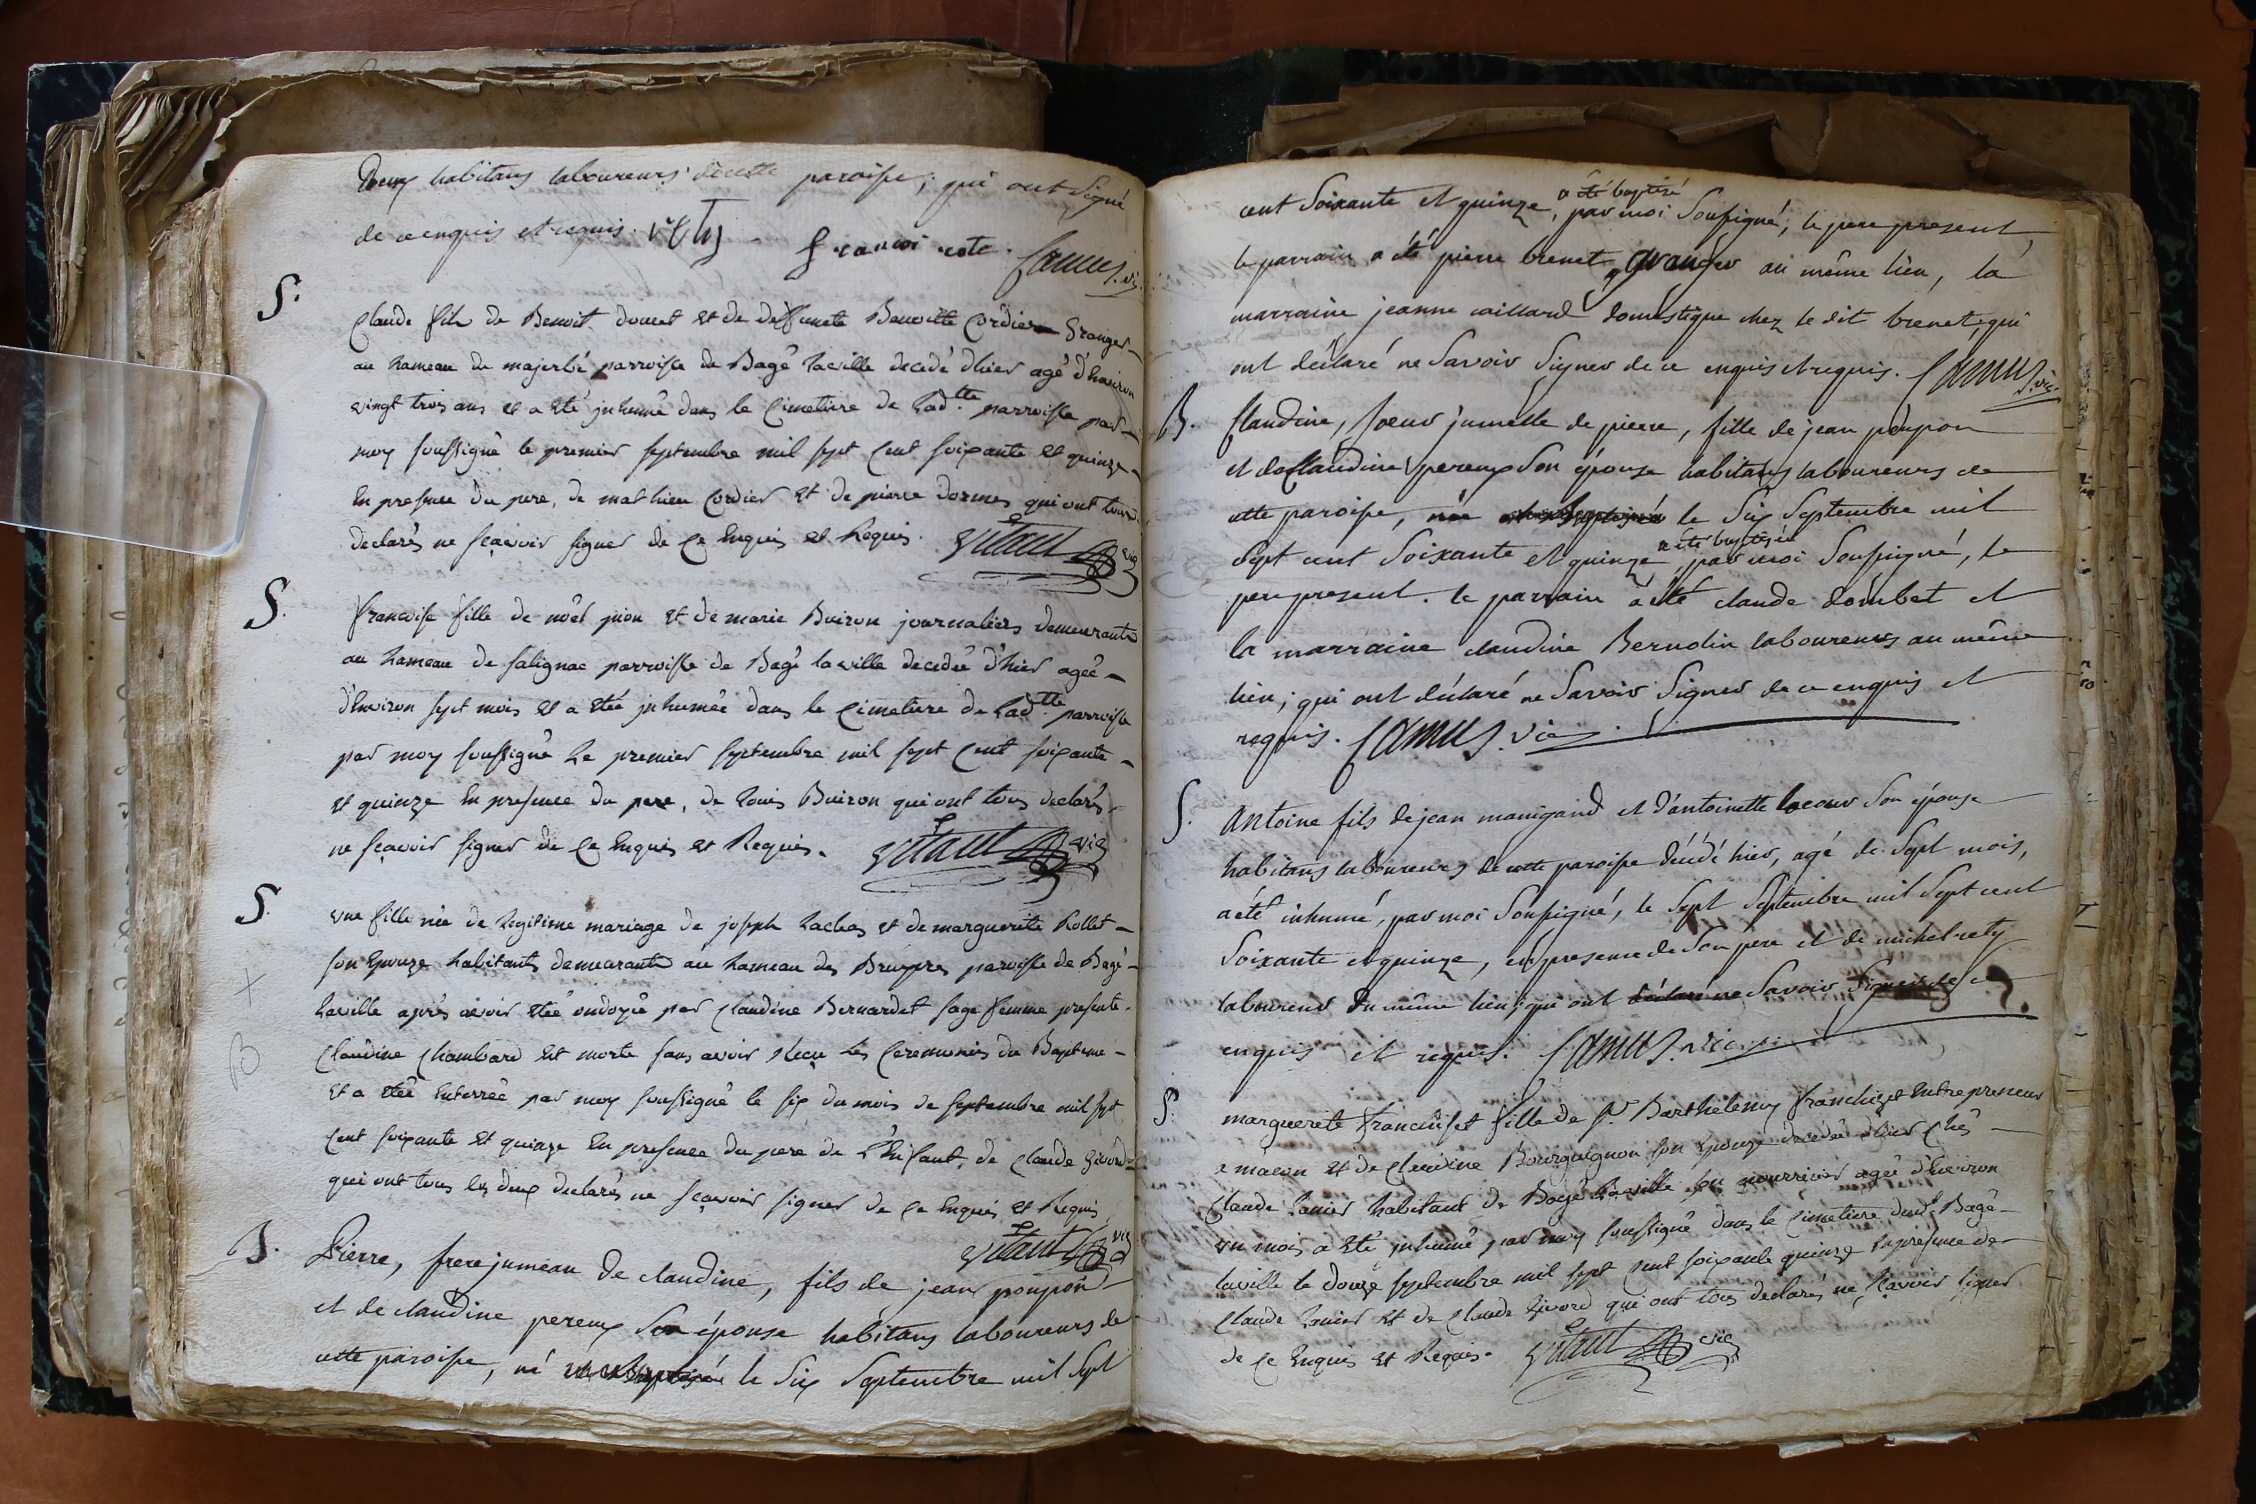 Deux habitans laboureurs de cette paroisse; qui ont signé
de ce enquis et requis. rety francoi cote. Camus. vic.
S. Claude fils de Benoit doucet et de deffuncte Benoitte Cordier Granger
au hameau de majorlié parroisse de Bagé laville decedé d'hier agé d'Environ
vingt trois ans et a eté inhumé dans le Cimetiere de lad.tte parroisse par
moy soussigné le premier septembre mil sept cent soixante et quinze
En presence du pere, de mathieu Cordier et de pierre dormes qui ont tous
declarés ne sçavoir signer de ce Enquis et Requis. vitaut vic
S. francoise fille de noël pion et de marie Buiron journaliers demeurants
au hameau de salignac parroisse de Bagé laville decedée d'hier agée
d'Environ sept mois et a etée inhumée dans le Cimetiere de lad.tte parroisse
par moy soussigné le premier septembre mil sept cent soixante
et quinze En presence du pere, de Louis Buiron qui ont tous declarés
ne sçavoir signer de ce Enquis et Requis. vitaut vic
S. une fille née de legitime mariage de joseph Laclas et de marguerite Rollet
son Epouze habitants demeurants au hameau des Bruyeres paroisse de Bagé
laville après avoir étée ondoyée par Claudine Bernardet sage femme presente
Claudine Chambard est morte sans avoir Reçu les Ceremonies du Bapteme
et a etée Enterrée par moy soussigné le six du mois de septembre mil sept
cent soixante et quinze En presence du pere de L'Enfant, de Claude Givord
qui ont tous les deux declarés ne sçavoir signer de ce Enquis et Requis
vitaut vic
B. Pierre, frere jumeau de claudine, fils de jean poupon
et de claudine pereux son épouse habitans laboureurs de
cette paroisse, né le six septembre mil sept
cent soixante et quinze, a été baptisé par moi soussigné, le pere present,
le parrain a été pierre brenet, granger au même lieu, la
marraine jeanne caillard domestique chez le dit brenet, qui
ont déclaré ne savoir signer de ce enquis et requis. Camus. vic.
B. Claudine, soeur jumelle de pierre, fille de jean poupon
et de Claudine pereux son épouse habitans laboureurs de
cette paroisse, née le six septembre mil
sept cent soixante et quinze a été baptisée par moi soussigné, le
pere present. le parrain a été claude doubet et
la marraine claudine Bernolin laboureurs au même
lieu; qui ont déclaré ne savoir signer de ce enquis et
requis. Camus. vic.
S. Antoine fils de jean manigand et d'antoinette lacour son épouse
habitans laboureurs de cette paroisse décédé hier, agé de sept mois,
a été inhumé, par moi soussigné, le sept septembre mil sept cent
soixante et quinze, en presence de son père et de michel rety
laboureur du même lieu; qui ont déclaré ne savoir signer de ce
enquis et requis. Camus. vic.
S. marguerite franchiset fille de Sr. Barthélemy franchizet Entrepreneur
a macon et de Claudine Bourguignon son Epouze decedée d'hier chés
Claude Lanier habitant de Bagé laville son nourricier agée d'Environ
un mois a eté inhumé par moy soussigné dans le cimetiere dud.t Bagé
laville le douze septembre mil sept cent soixante quinze En presence de
Claude Lanier et de Claude Givord qui ont tous declarés ne sçavoir signer
de ce Enquis et Requis. vitaut vic